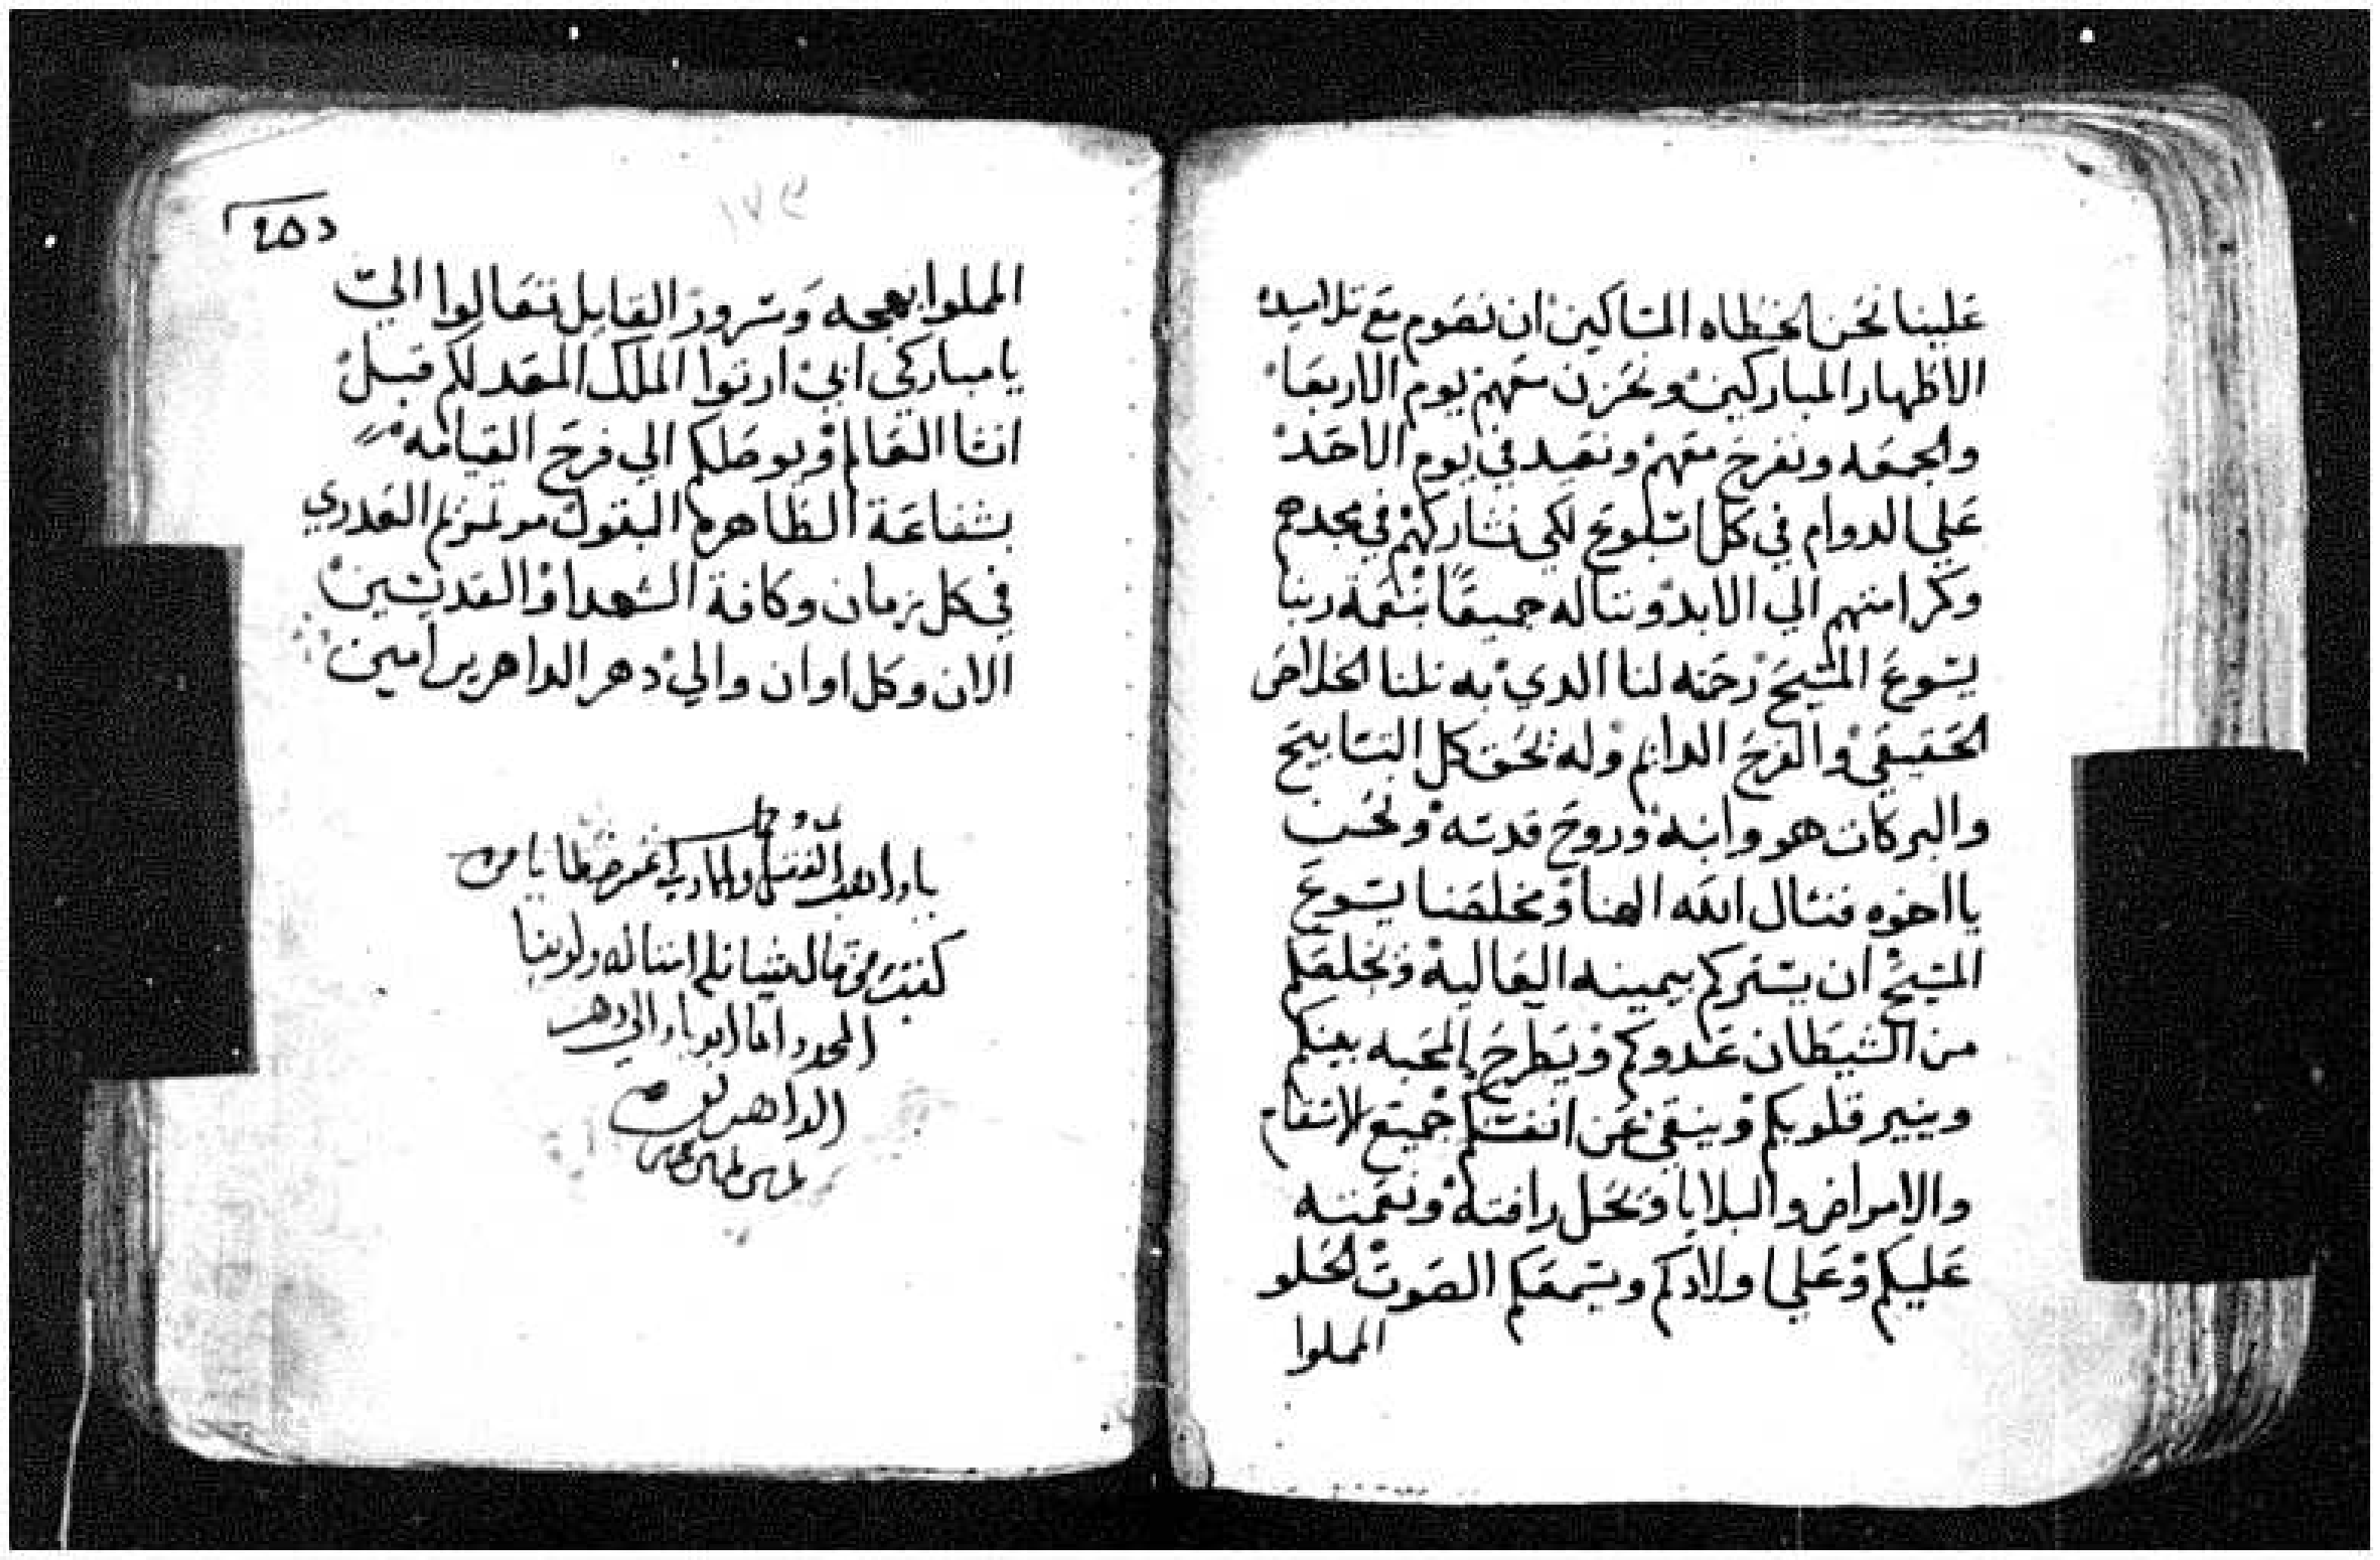 علينا نحن الخطاه المساكين ان نصوم مع تلاميده
الاطهار المباركين ونحزن معهم يوم الاربعا
والجمعه ونفرح معهم ونعيد في يوم الاحد
علي الدوام في كل اسبوع لكي نشاركهم في مجدهم
وكرامتهم الي الابد ونساله جميعا بنعمة ربنا
يسوع المسيح رحمته لنا الدي به نلنا الخلاص
الحقيقي والفرح الدايم وله تحق كل التسابيح
والبركات هو وابنه وروح قدسه ونحن
يا اخوه فنسال الله الهنا ومخلصنا يسوع
المسيح ان يستركم بيمينه العاليه ويخلصكم
من الشيطان عدوكم ويطرح المحبه بينكم
وينير قلوبكم وينقي عن انفسكم جميع الاسقام
والامراض والبلايا وتحل رافته ونعمته
عليكم وعلي اولادكم ويسمعكم الصوت الحلو
المملوا
١٧٣
المملوا بهجه وسرور القايل تعالوا الي
يا مباركي ابي ارتوا الملك المعد لكم قبل
انشا العالم ويوصلكم الي فرح القيامه
بشفاعة الطاهره البتول مرتمريم العدري
في كل زمان وكافة الشهدا والقديسين
الان وكل اوان والي دهر الداهرين امين
يا من
الي دهر
الداهرين